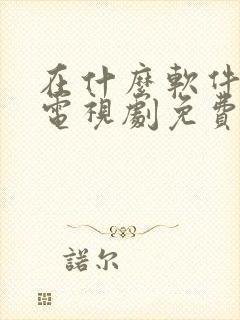 在什麼軟件
電視劇免費
諾尔